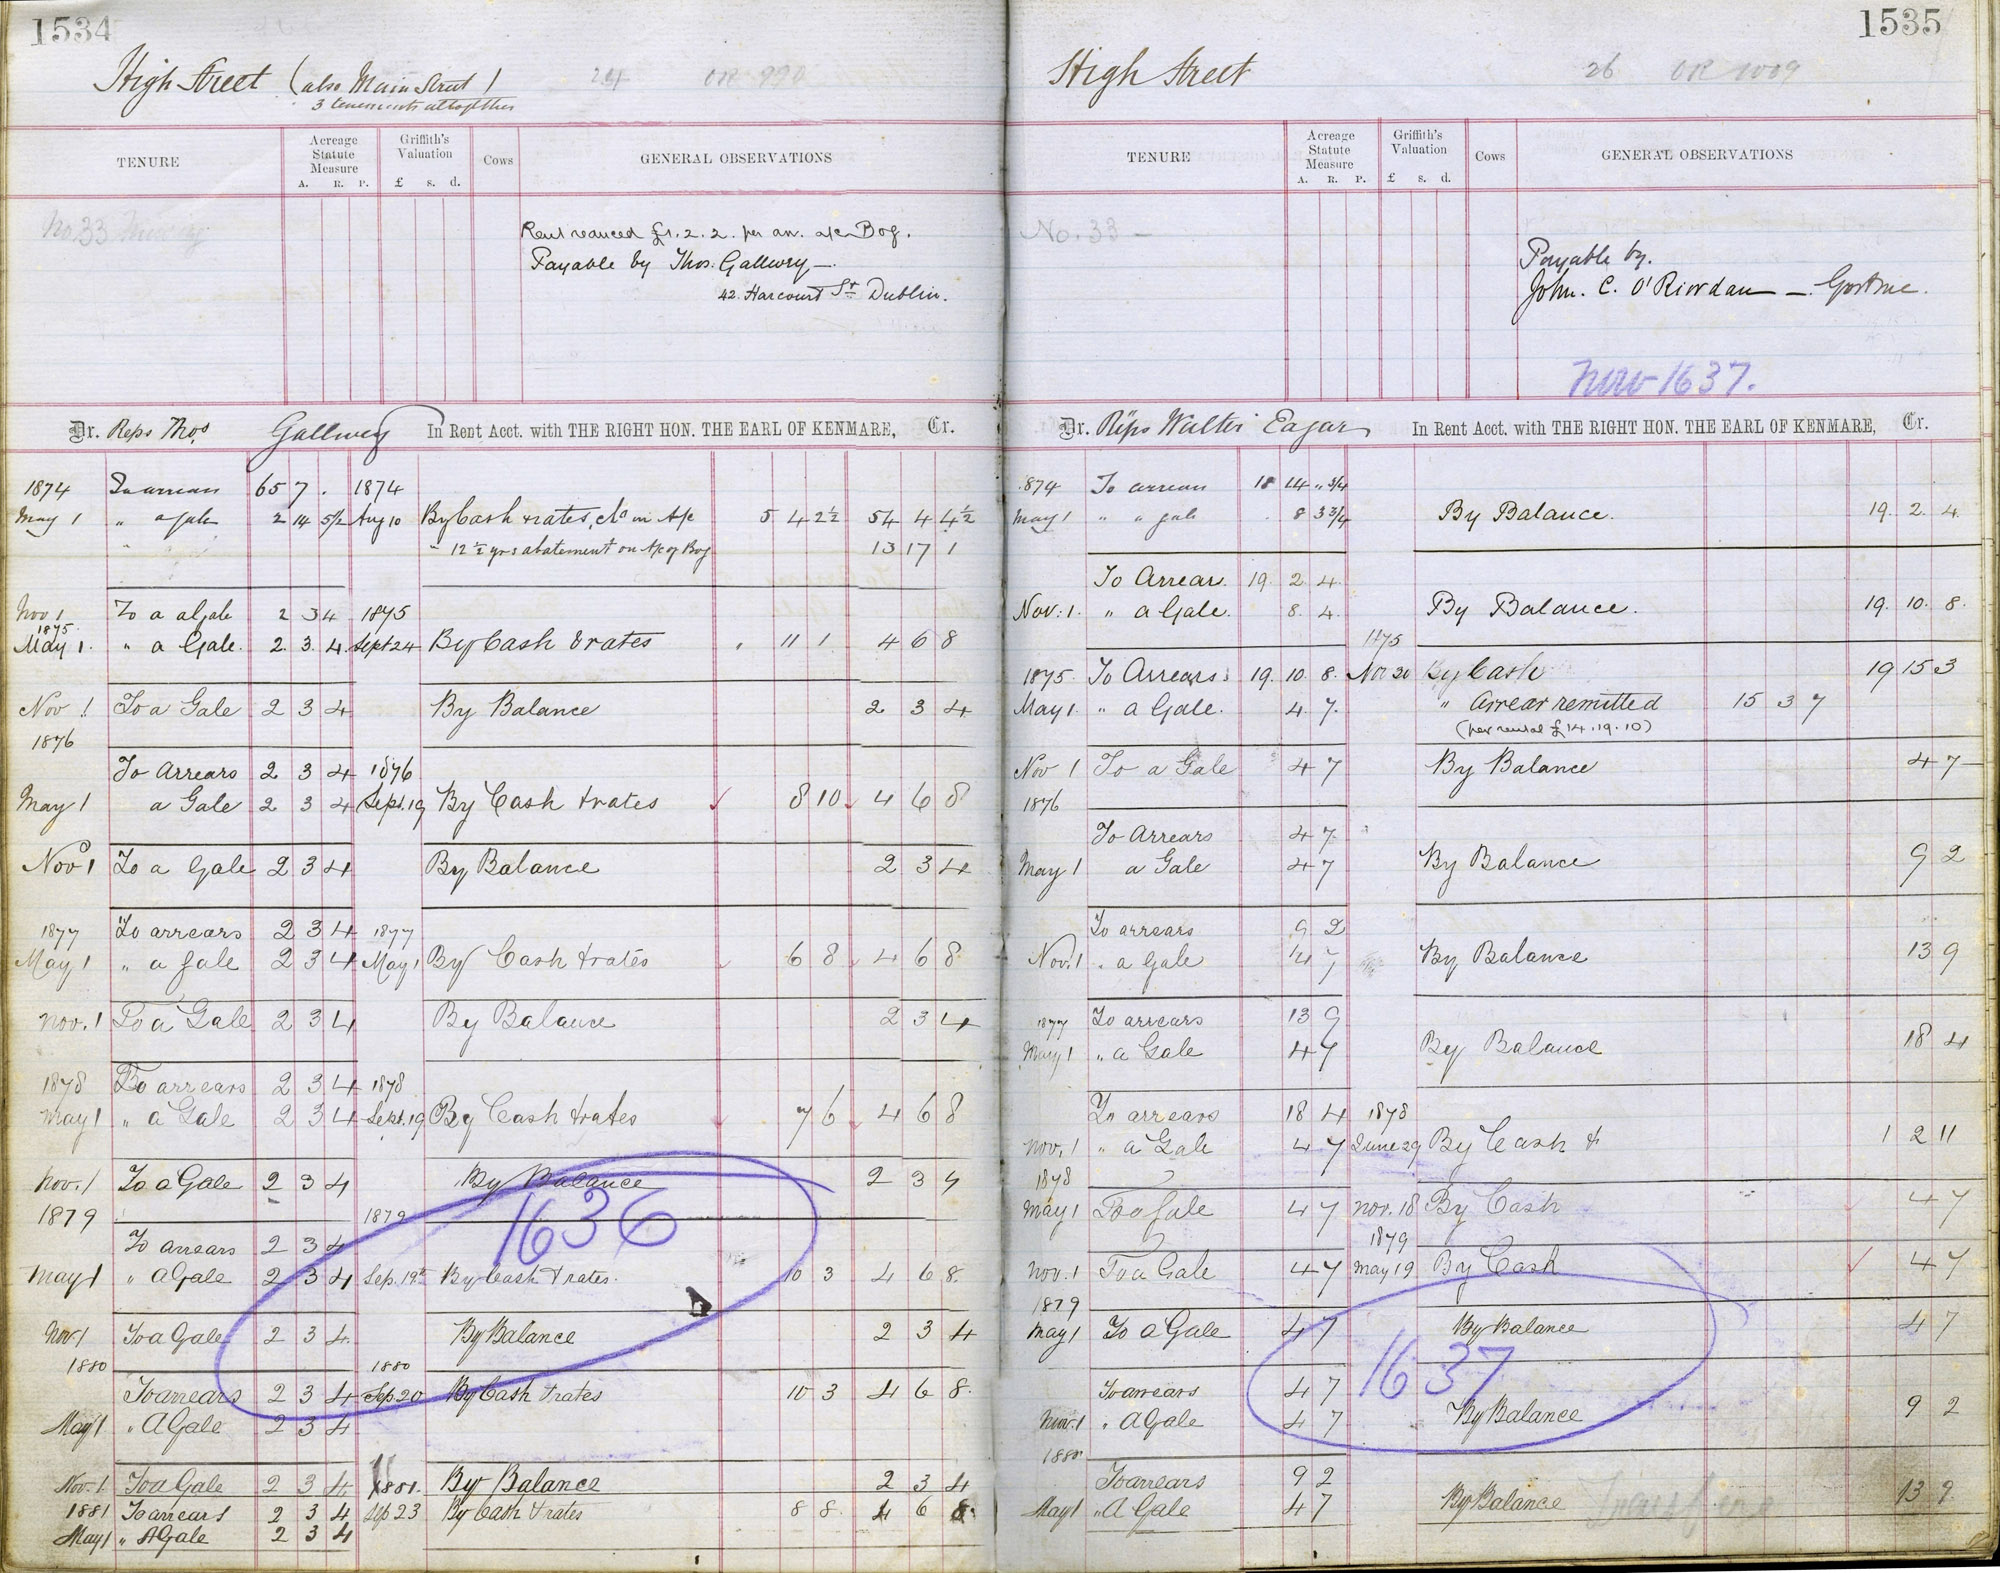 1534
High Street (also Main Street)
3 tenements altogether
24 OR 990
TENURE
Acreage Statute Measure
A. R. P.
Griffith's Valuation
£ s. d.
Cows
GENERAL OBSERVATIONS
No. 33
Rent reduced £1. 2. 2. per an. a/c Bog.
Payable by Thos. Gallwey —
42 Harcourt St Dublin.
Dr. Reps Thos Gallwey In Rent Acct. with THE RIGHT HON. THE EARL OF KENMARE, Cr.
1874 To arrears 65 7 . 1874
May 1 " a gale 2 14 5½ Aug 10 By Cash & rates, &c on A/c 5 4 2½ 54 4 4½
" 12½ yrs abatement on A/c of Bog 13 17 1
Nov 1 To a Gale 2 3 4 1875
1875
May 1. " a Gale. 2. 3. 4. Sept 24 By Cash & rates " 11 1 4 6 8
Nov 1 To a Gale 2 3 4 By Balance 2 3 4
1876
To Arrears 2 3 4 1876
May 1 a Gale 2 3 4 Sept. 19 By Cash & rates 8 10 4 6 8
Nov 1 To a Gale 2 3 4 By Balance 2 3 4
1877 To arrears 2 3 4 1877
May 1 " a gale 2 3 4 May 1 By Cash & rates 6 8 4 6 8
Nov. 1 To a Gale 2 3 4 By Balance 2 3 4
1878 To arrears 2 3 4 1878
May 1 " a Gale 2 3 4 Sept. 19 By Cash & rates 7 6 4 6 8
Nov. 1 To a Gale 2 3 4 By Balance 2 3 4
1636
1879 1879
To arrears 2 3 4
May 1 " A Gale 2 3 4 Sep. 19th By Cash & rates. 10 3 4 6 8.
Nov 1 To a Gale 2 3 4 By Balance 2 3 4
1880 1880
To arrears 2 3 4 Sep 20 By Cash & rates 10 3 4 6 8.
May 1 " A Gale 2 3 4
Nov. 1 To a Gale 2 3 4 1881. By Balance 2 3 4
1881 To arrears 2 3 4 Sep 23 By Cash & rates 8 8. 4 6 8.
May 1 " A Gale 2 3 4
1535
High Street
26 OR 1009
TENURE
Acreage Statute Measure
A. R. P.
Griffith's Valuation
£ s. d.
Cows
GENERAL OBSERVATIONS
No. 33 —
Payable by.
John. C. O'Riordan —
now 1637.
Dr. Reps Walter Eagar In Rent Acct. with THE RIGHT HON. THE EARL OF KENMARE, Cr.
1874 To arrears 18 14 " ¾
May 1 " " gale . 8 3¾ By Balance. 19. 2. 4.
To Arrears. 19. 2 4.
Nov: 1. " a Gale. 8. 4. By Balance. 19. 10. 8.
1875
1875. To Arrears: 19. 10. 8. Nov 20 By Cash 19 15 3
May 1. " a Gale. 4. 7. " Arrear remitted 15 3 7
(per rental £14.19.10)
Nov 1 To a Gale 4 7 By Balance 4 7
1876
To Arrears 4 7
May 1 a Gale 4 7 By Balance 9 2
To arrears 9 2
Nov. 1 " a Gale 4 7 By Balance 13 9
1877 To arrears 13 9
May 1 " a Gale 4 7 By Balance 18 4
To arrears 18 4 1878
Nov. 1 " a Gale 4 7 June 29 By Cash & 1 2 11
1878
May 1 To a gale 4 7 Nov. 18 By Cash 4 7
1879
Nov. 1 To a Gale 4 7 May 19 By Cash 4 7
1879
May 1 To a Gale 4 7 By Balance 4 7
1637
To arrears 4 7
Nov. 1 " A Gale 4 7 By Balance 9 2
1880
To arrears 9 2
May 1 " A Gale 4 7 By Balance 13 9